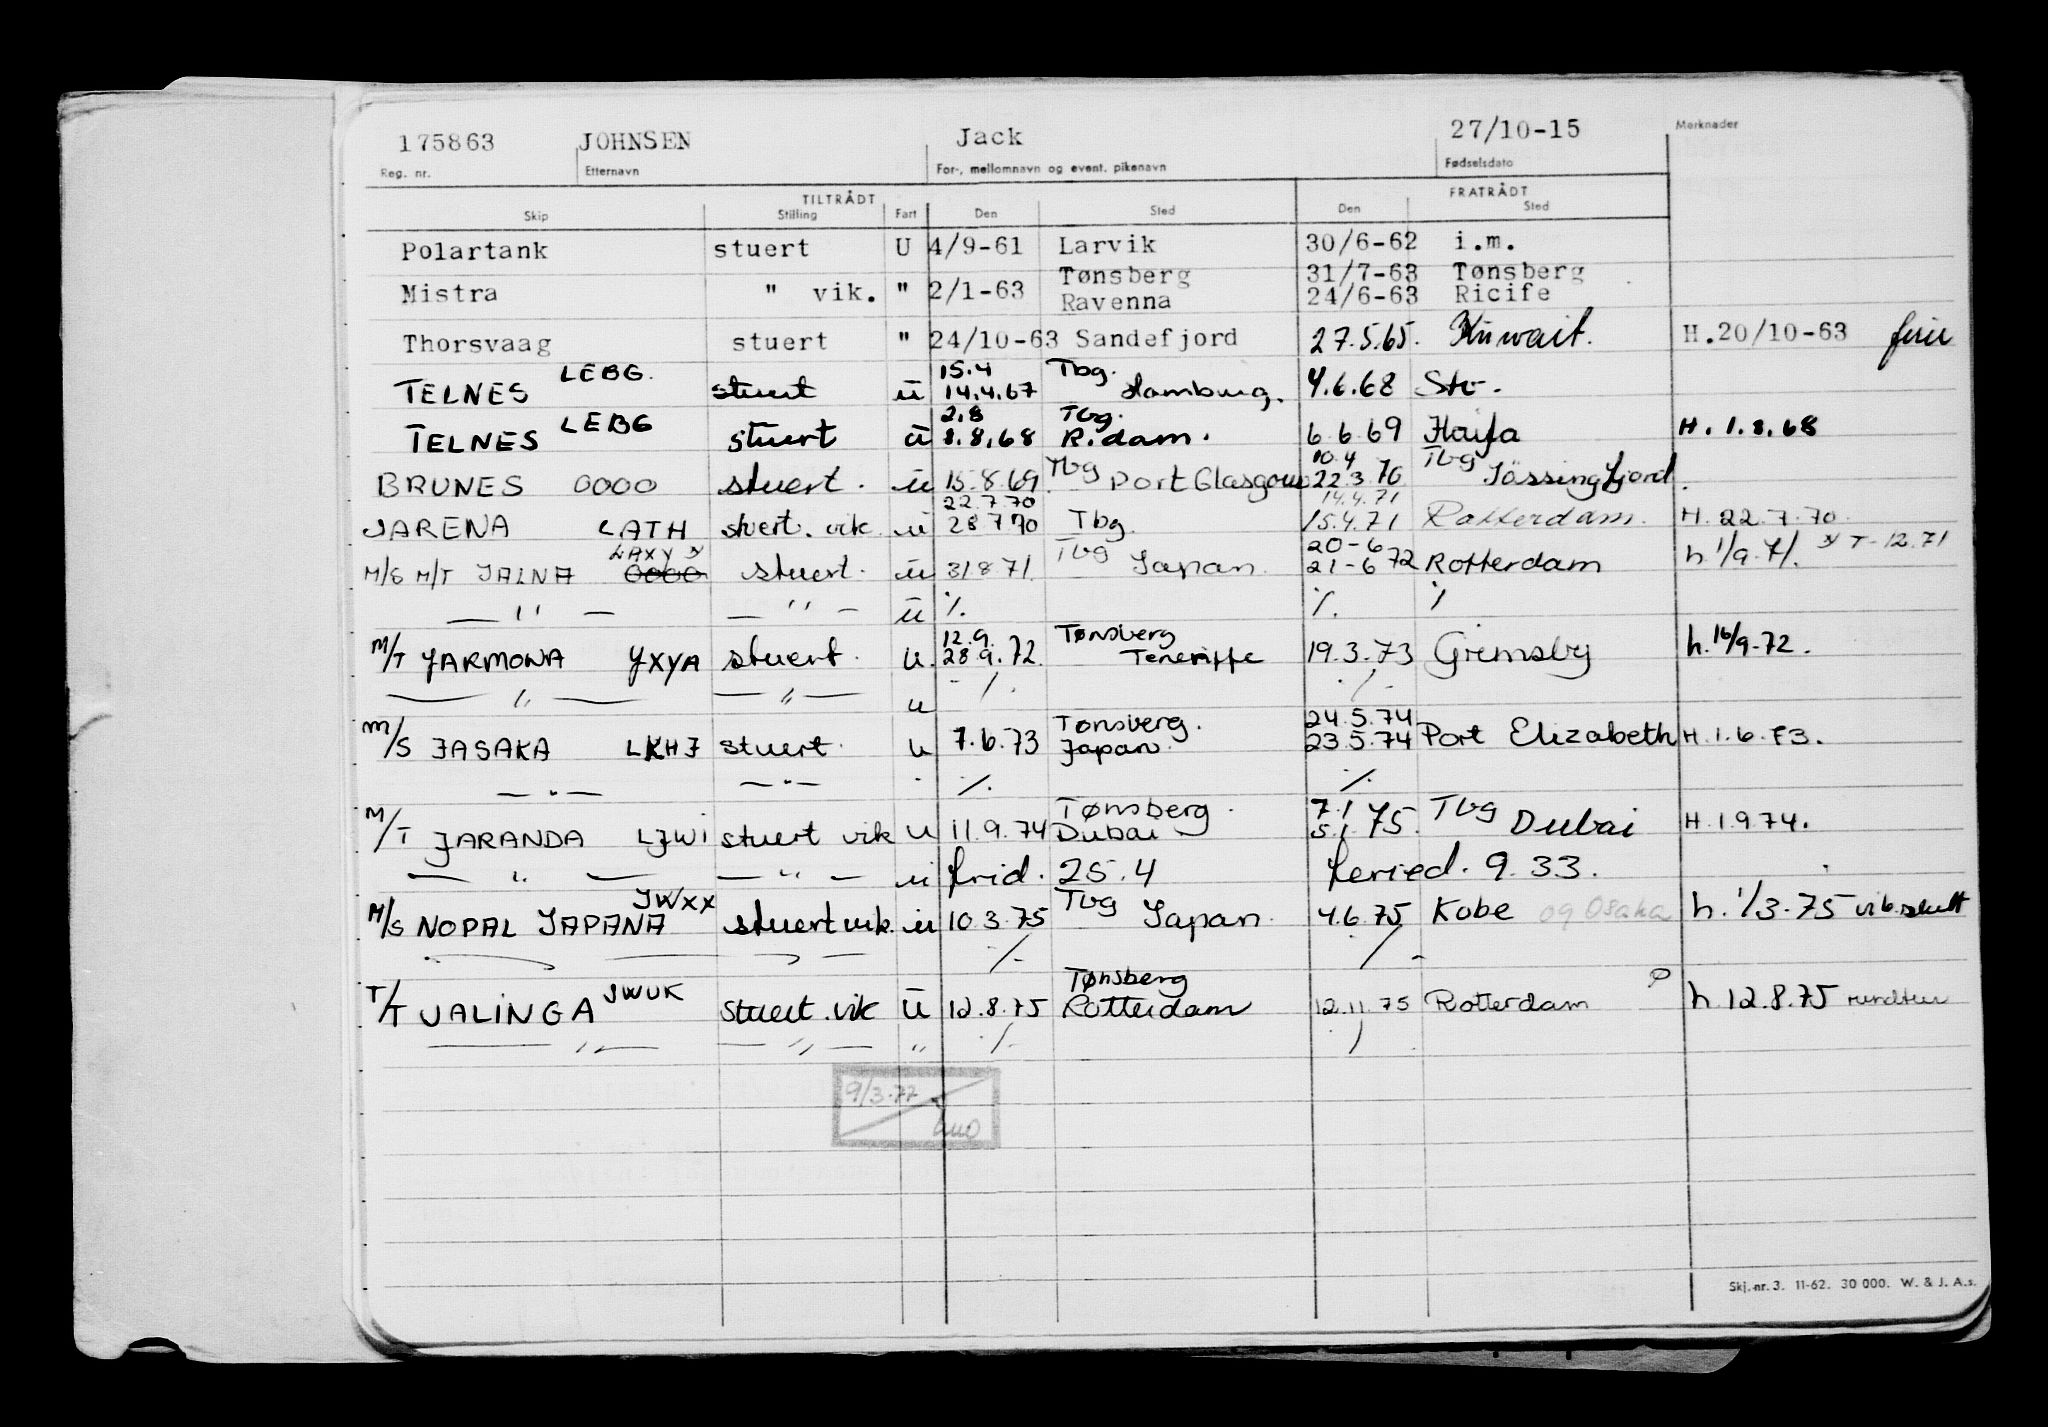 175863 JOHNSEN Jack 27/10-15 Merknader
Reg. nr. Etternavn For-, mellomnavn og event. pikenavn Fødselsdato
TILTRÅDT FRATRÅDT
Skip Stilling Fart Den Sted Den Sted
Polartank stuert U 4/9-61 Larvik 30/6-62 i.m.
Tønsberg 31/7-63 Tønsberg
Mistra " vik. " 2/1-63 Ravenna 24/6-63 Ricife
Thorsvaag stuert " 24/10-63 Sandefjord 27.5.65. Kuwait. H.20/10-63
LEBG. 15.4 Tbg.
TELNES stuert u 14.4.67 Hamburg. 4.6.68
LEBG 2.8 Tbg.
TELNES stuert u 8.8.68 R.dam. 6.6.69 Haifa H. 1.8.68
10.4 Tbg
BRUNES OOOO stuert. u 15.8.69. Tbg Port Glasgow 22.3.70 Jøssingfjord.
22.7.70 14.4.71
JARENA LATH stuert. vik. u 28 7 70 Tbg. 15.4.71 Rotterdam. H. 22.7.70.
LAXY x Tbg 20-6
M/S M/T JALNA OOOO stuert. u 31 8 71. Japan. 21-6 72 Rotterdam h. 1/9.71. x T-12.71
— " — — " — u %. %. %
12.9. Tønsberg
M/T JARMONA YXYA stuert. u. 28.9.72. Teneriffe 19.3.73 Grimsby h. 16/9-72.
— " — — " — u % %
Tønsberg. 24.5.74
M/S JASAKA LKHJ stuert. u 7.6.73 Japan. 23.5.74 Port Elizabeth H.1.6.73.
— " — — " — %. %.
Tønsberg. 7.1
M/T JARANDA LJWI stuert vik u 11.9.74 Dubai 5.1 75. Tbg Dubai H.1.9.74.
— " — — " — u frid. 25.4 feried. 9.33.
JWXX Tbg
M/S NOPAL JAPANA stuert vik. u 10.3.75 Japan. 4.6.75 Kobe og Osaka h. 1/3.75 vik.slutt
%. %.
Tønsberg
T/T JALINGA JWUK stuert. vik u 12.8.75 Rotterdam 12.11.75 Rotterdam h. 12.8.75 rundtur
— " — — " — " %
9/3-77
Skj. nr. 3. 11-62. 30 000. W. & J. A.s.